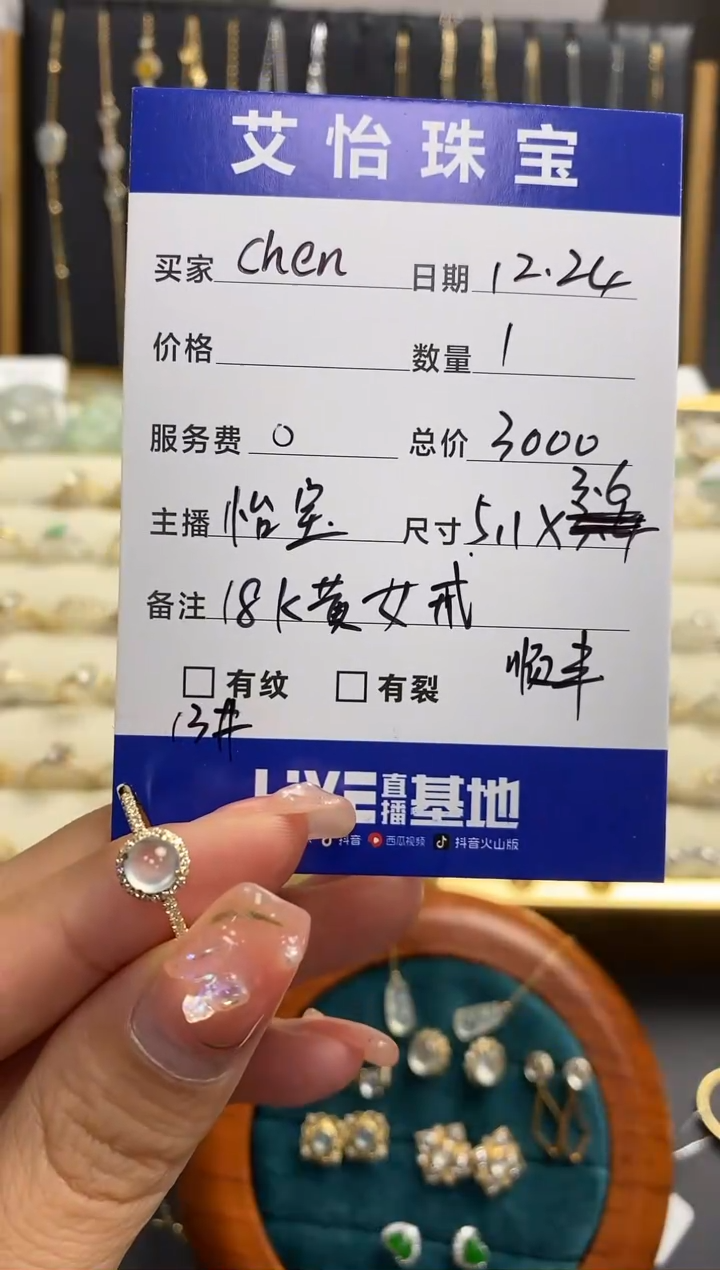 艾怡珠宝
买家 chen 日期 12.24
价格 数量 1
服务费 0 总价 3000
主播 怡宝 尺寸 5.1X3.6
备注 18K黄女戒
顺丰
有纹 有裂
13#
LIVE直播基地
抖音 西瓜视频 抖音火山版